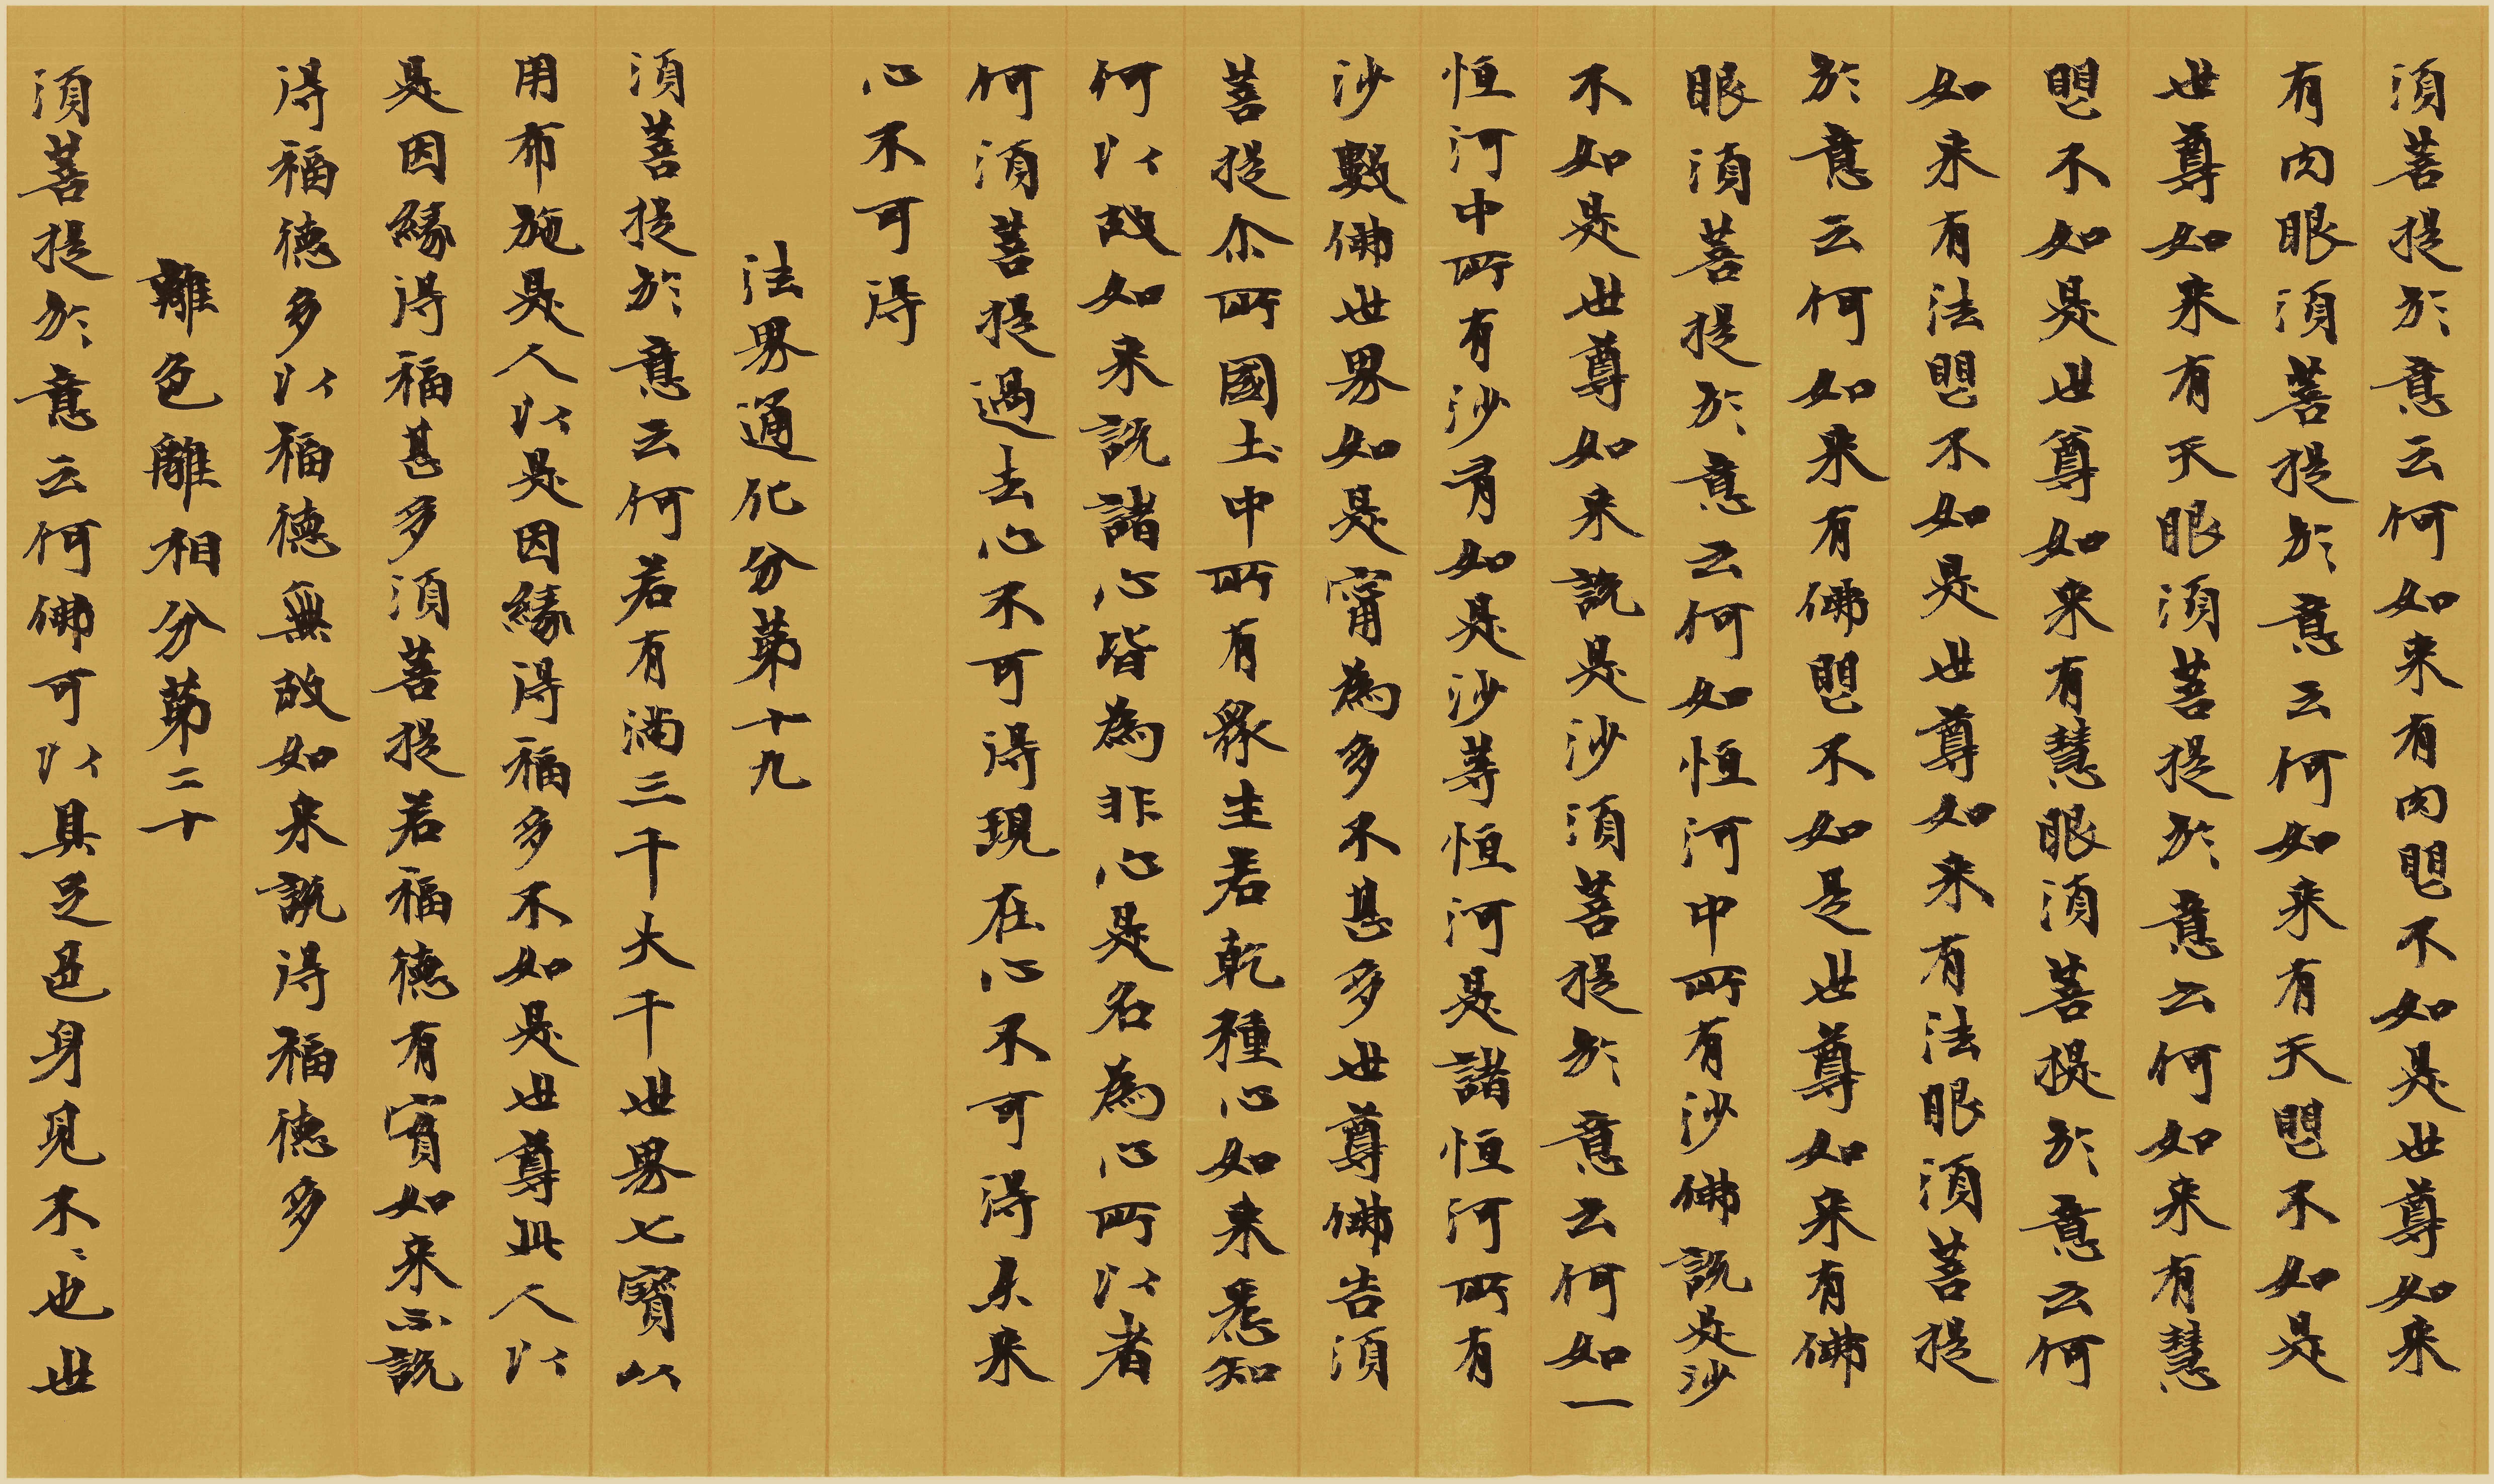 須菩提於意云何如来有肉眼不如是世尊如来
有肉眼須菩提於意云何如来有天眼不如是
世尊如来有天眼須菩提於意云何如来有慧
眼不如是世尊如来有慧眼須菩提於意云何
如来有法眼不如是世尊如来有法眼須菩提
於意云何如来有佛眼不如是世尊如来有佛
眼須菩提於意云何如恒河中所有沙佛説是沙
不如是世尊如来説是沙須菩提於意云何如一
恒河中所有沙有如是沙等恒河是諸恒河所有
沙數佛世界如是甯為多不甚多世尊佛告須
菩提尒所國土中所有眾生若乾種心如来悉知
何以故如来説諸心皆為非心是名為心所以者
何須菩提過去心不可得現在心不可得未来
心不可得
法界通化分第十九
須菩提於意云何若有滿三千大千世界七寶以
用布施是人以是因緣得福多不如是世尊此人以
是因緣得福甚多須菩提若福德有實如来不説
得福德多以福德無故如来説得福德多
離色離相分第二十
須菩提於意云何佛可以具足色身見不〻也世